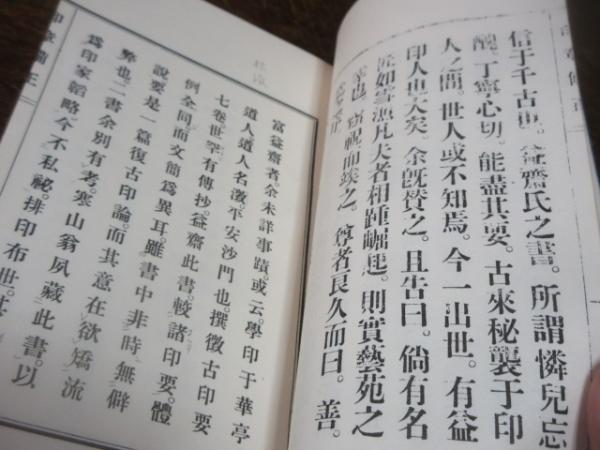 信于千古也。益齋氏之書。所謂憐兒忘
醜。丁寧心切。能盡其要。古來秘襲于印
人之間。世人或不知焉。今一出世。有益
印人也大矣。余旣贊之。且告曰。倘有名
匠如雪漁凡夫者相踵崛起。則實藝苑之
幸也。竊祝而竢之。尊者良久而曰。善。
富益齋者。余未詳事蹟。或云學印于華亭
道人。道人名澂。平安沙門也。撰徵古印要
七卷。世罕有傳抄。益齋此書。較諸印要。體
例全同。而文簡爲異耳。雖書中非時無僻
說。要是一篇復古印論。而其意在欲矯流
弊也。二書余別有考。寒山翁夙藏此書。以
爲印家韜略。今不私祕。排印布世。其